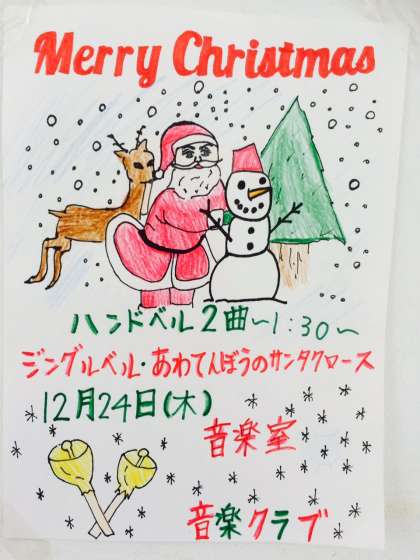 Merry Christmas
ハンドベル2曲~1:30~
ジングルベル・あわてんぼうのサンタクロース
12月24日(木)
音楽室
音楽クラブ